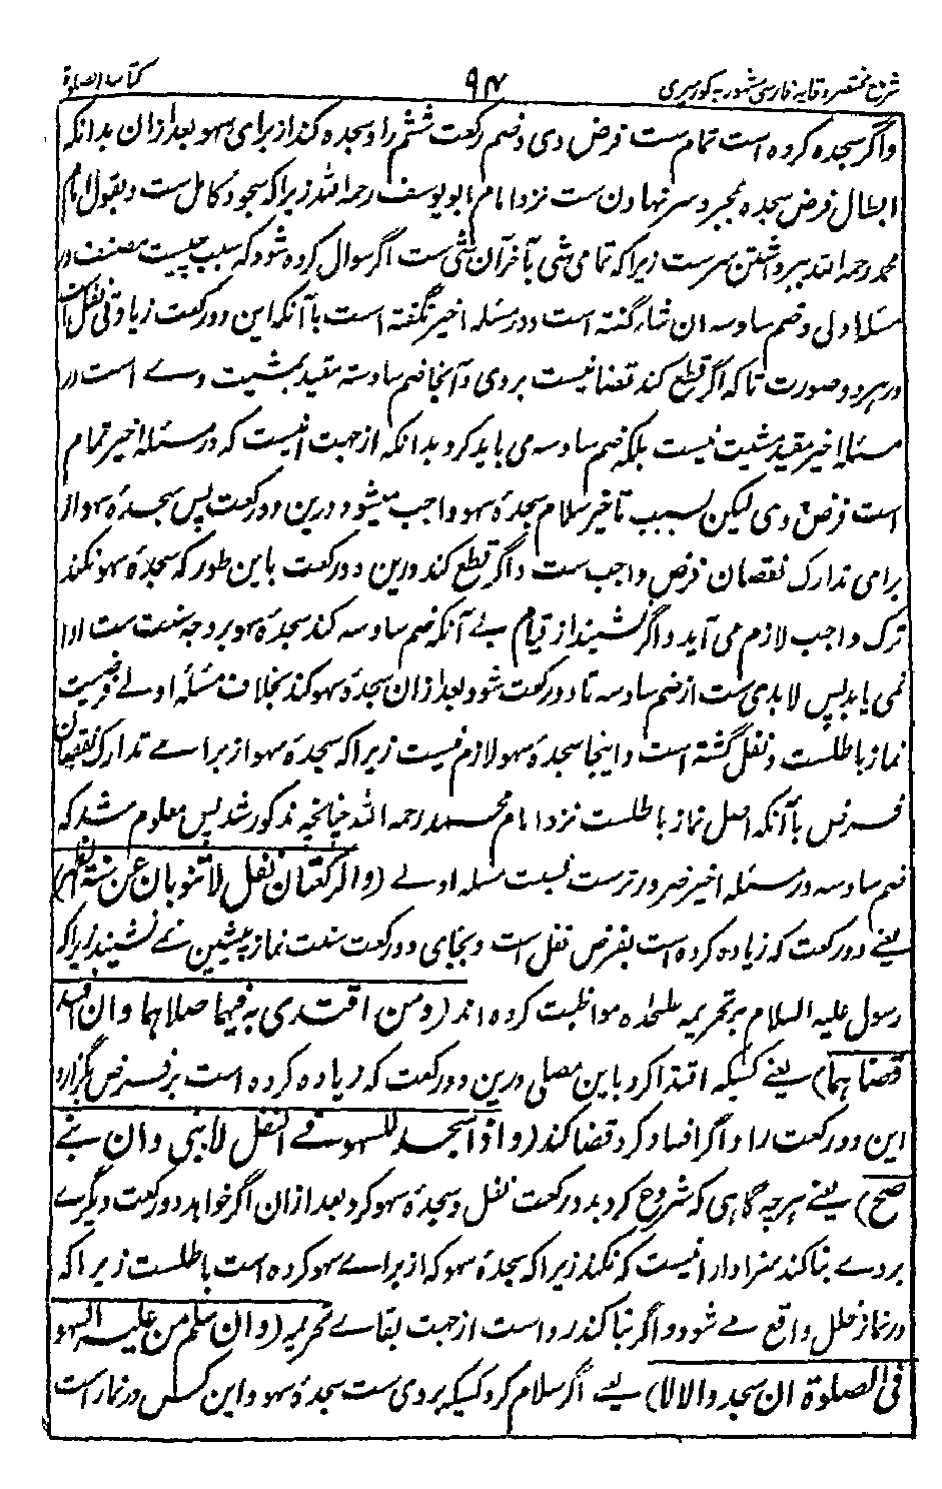 کتاب الصلوة ۹۴ شرح مختصر وقایه فارسی مشهور به کورمیری
واگر سجده کرده است تمام ست فرض وی وضم رکعت ششم را و سجده کند از برای سهو بعد ازان بدانکه
ابطال فرض سجده بمجرد سر نهادن ست نزد امام ابو یوسف رحمه الله زیرا که سجود کامل ست و بقول امام
محمد رحمه الله ببرداشتن سرست زیرا که تمامی شی بآخر آن شی ست اگر سوال کرده شود که سبب چیست مصنف در
مسئله اولی وضم سادسه ان شاء گفته است و در مسئله اخیر نگفته است با آنکه این دو رکعت زیادتی نفل است
در هر دو صورت تا که اگر قطع کند قضا نیست بر وی و آنجا ضم سادسه مقید بمشیت وے است در
مسئله اخیر مقید بمشیت نیست بلکه ضم سادسه می باید کرد بدانکه از جهت انیست که در مسئله اخیر تمام
است فرض وی لیکن بسبب تاخیر سلام سجدۀ سهو واجب میشود و درین دو رکعت پس سجدۀ سهو از
برامی تدارک نقصان فرض واجب ست و اگر قطع کند درین دو رکعت باین طور که سجدۀ سهو نکند
ترک واجب لازم می آید و اگر نشیند از قیام بے آنکه ضم سادسه کند سجدۀ سهو بر وجه سنت ست ادا
نمی یابد پس لابدی ست از ضم سادسه تا دو رکعت شود بعد ازان سجدۀ سهو کند بخلاف مسئله اولے فرضیت
نماز باطلست و نفل گشته است و اینجا سجدۀ سهو لازم نیست زیرا که سجدۀ سهو از براے تدارک نقصان
فرض با آنکه اصل نماز باطلست نزد امام محمد رحمه الله چنانچه مذکور شد پس معلوم شد که
ضم سادسه در مسئله اخیر ضرور ترست نسبت مسئله اولے (والرکعتان نفل لا تنوبان عن سنة الظهر)
یعنے دو رکعت که زیاده کرده است بفرض نفل است و بجای دو رکعت سنت نماز پیشین نے نشیند زیرا که
رسول علیه السلام بر تحریمه علحده مواظبت کرده اند (ومن اقتدی به فیهما صلاهما وان افسد
قضاهما) یعنے کسیکه اقتدا کرد باین مصلی درین دو رکعت که زیاده کرده است بر فرض بگزارد
این دو رکعت را و اگر افساد کرد قضا کند (واذا سجد للسهو فے النفل لا یبنی وان بنے
صح) یعنے هر چه گاهی که شروع کرد بدو رکعت نفل و سجدۀ سهو کرد بعد ازان اگر خواهد دو رکعت دیگرے
بر وے بنا کند سزاوار انیست که نکند زیرا که سجدۀ سهو که از براے سهو کرده است باطلست زیرا که
در نماز خلل واقع مے شود و اگر بنا کند روا است از جهت بقاے تحریمه (وان سلم من علیه السهو
فی الصلوة ان سجد والا لا) یعنے اگر سلام کرد کسیکه بر وی ست سجدۀ سهو و این کس در نماز است